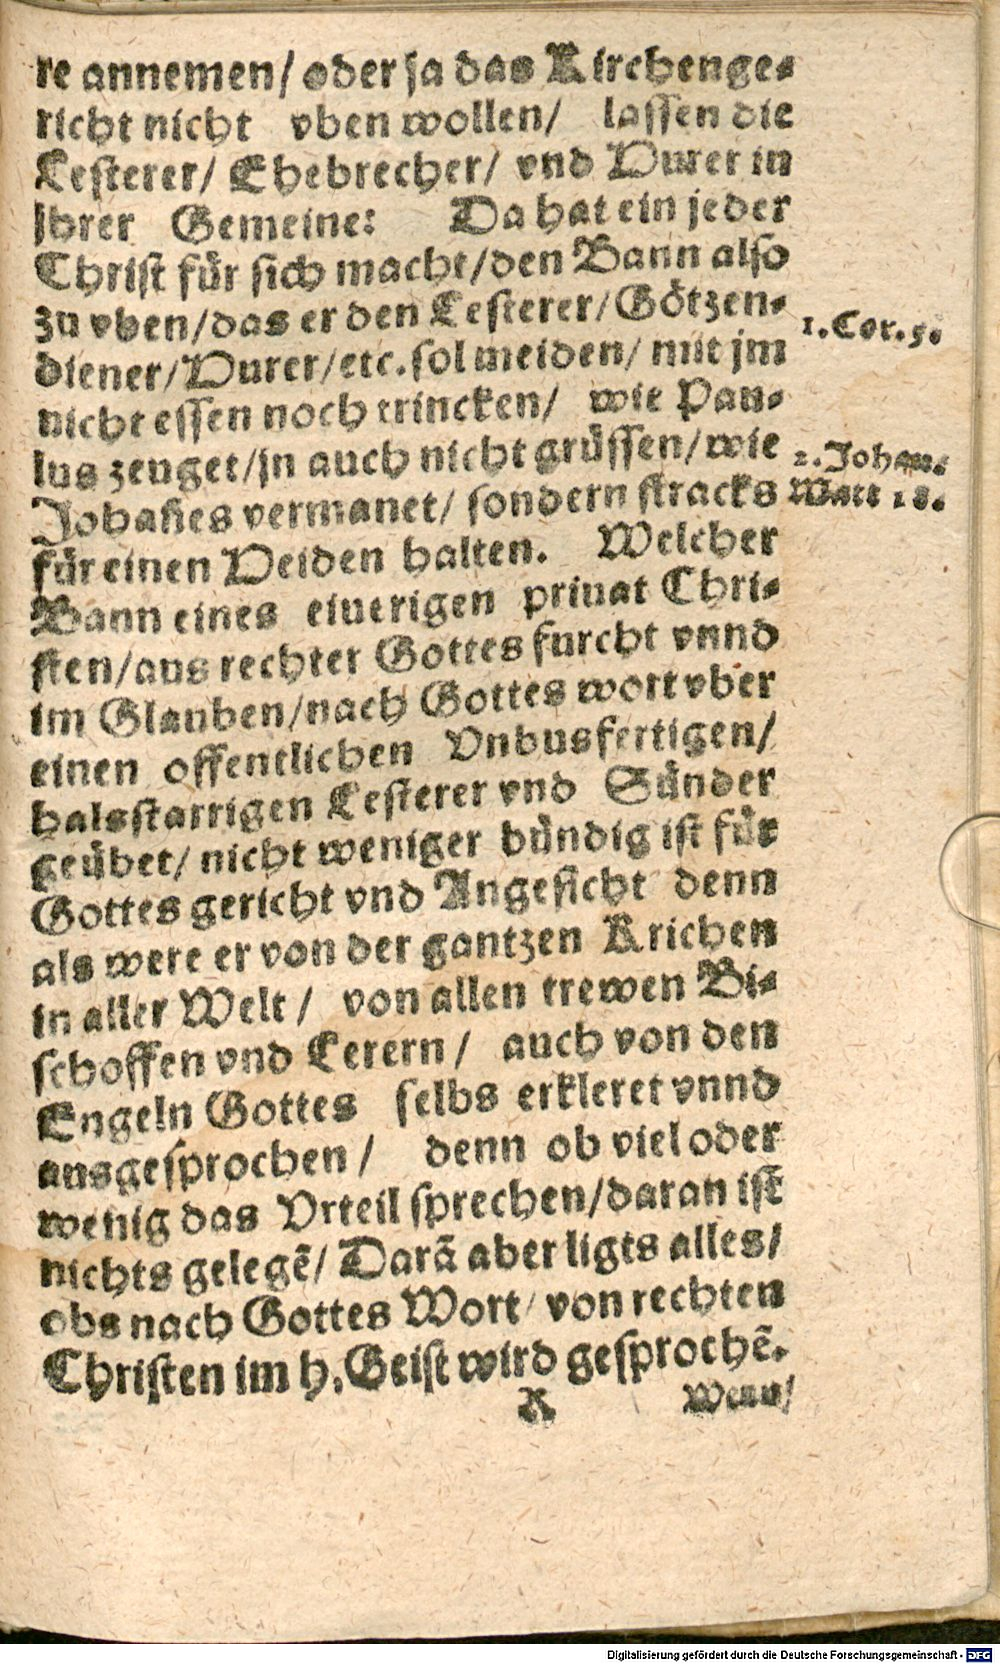 re annemen/ oder ja das Kirchenge⸗
richt nicht vben wollen/ lassen die
Lesterer/ Ehebrecher/ vnd Hurer in
jhrer Gemeine: Da hat ein jeder
Christ für sich macht/den Bann also
zu vben/das er den Lesterer/Götzen⸗
diener/Hurer/etc.sol meiden/ mit jm
nicht essen noch trincken/ wie Pau⸗
lus zeuget/jn auch nicht grüssen/wie
Johañes vermanet/ sondern stracks
für einen Heiden halten. Welcher
Bann eines eiuerigen priuat Chri⸗
sten/aus rechter Gottes furcht vnnd
im Glauben/nach Gottes wort vber
einen offentlichen Vnbusfertigen/
halsstarrigen Lesterer vnd Sünder
geübet/ nicht weniger bündig ist für
Gottes gericht vnd Angesicht denn
als were er von der gantzen Krichen
in aller Welt/ von allen trewen Bi⸗
schoffen vnd Lerern/ auch von den
Engeln Gottes selbs erkleret vnnd
ausgesprochen/ denn ob viel oder
wenig das Vrteil sprechen/daran ist
nichts gelegẽ/ Darã aber ligts alles/
obs nach Gottes Wort/ von rechten
Christen im h.Geist wird gesprochẽ.
K Wenn/
1.Cor.5.
2.Johan.
Matt 18.
Digitalisierung gefördert durch die Deutsche Forschungsgemeinschaft - DFG